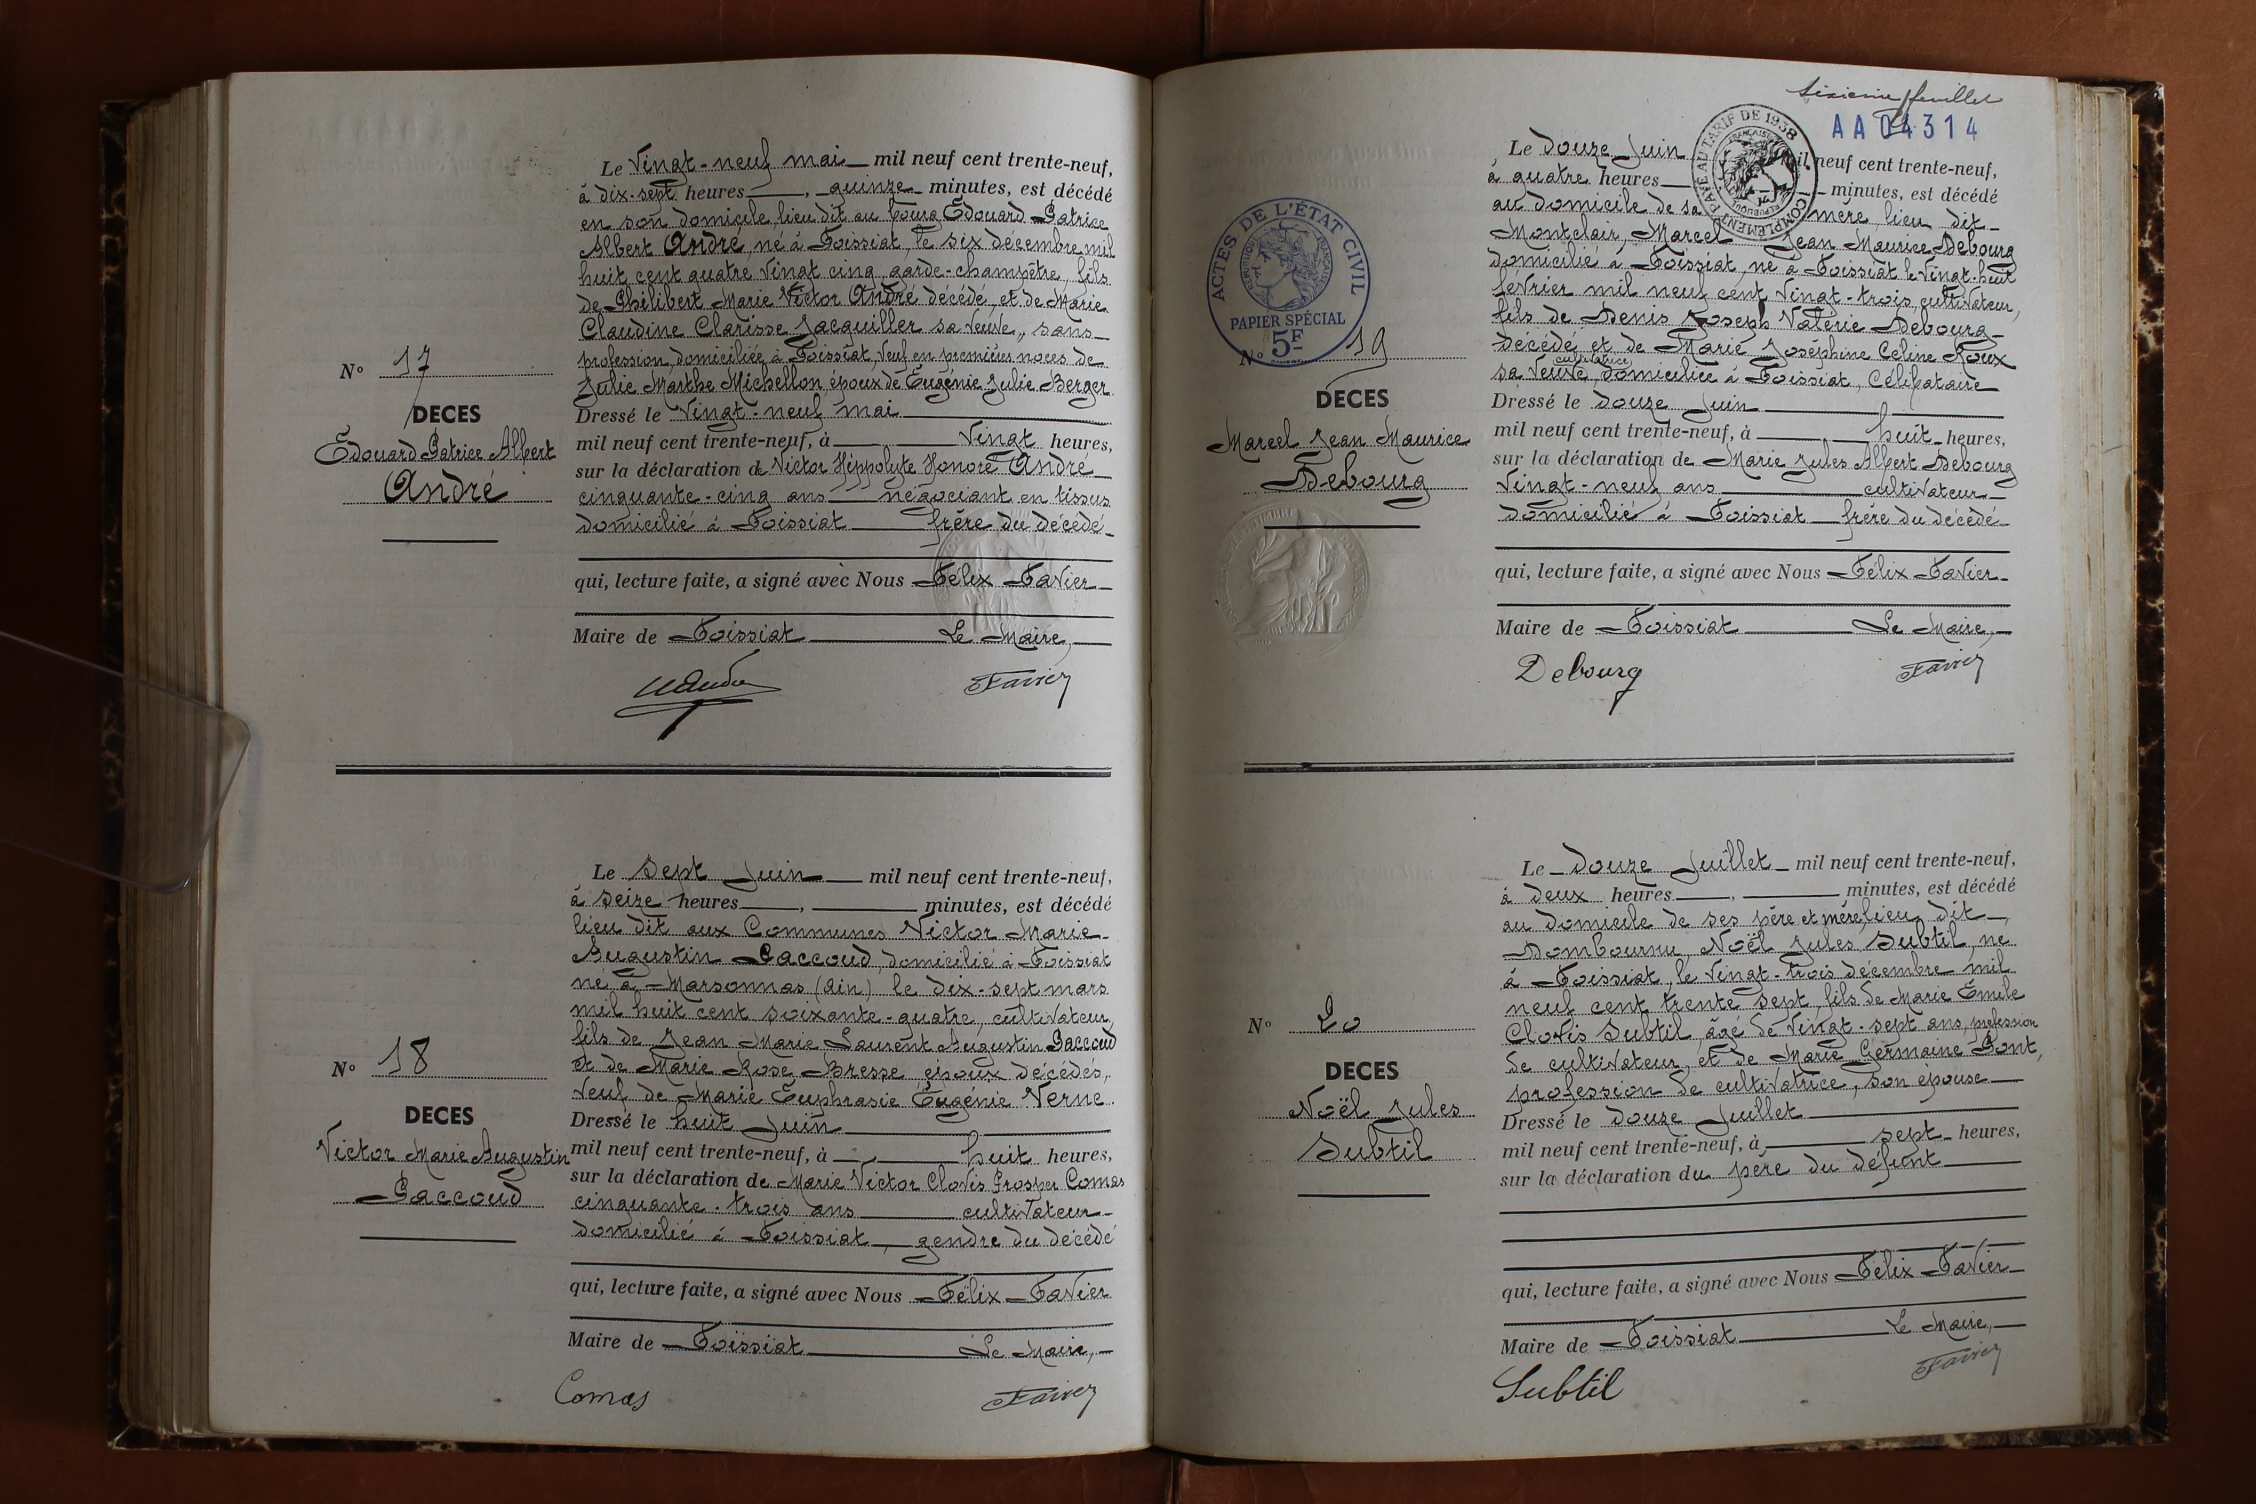 Le Vingt-neuf mai mil neuf cent trente-neuf,
à dix-sept heures, quinze minutes, est décédé
en son domicile, lieu dit au bourg Edouard Patrice
Albert André, né à Foissiat, le six décembre mil
huit cent quatre vingt cinq, garde-champêtre, fils
de Philibert Marie Victor André décédé, et de Marie
Claudine Clarisse Jacquiller sa veuve, sans
profession, domiciliée à Foissiat, Veuf en premières noces de
Julie Marthe Michellon, époux de Eugénie Julie Berger
N° 17
DECES
Edouard Patrice Albert
André
Dressé le Vingt-neuf mai
mil neuf cent trente-neuf, à Vingt heures,
sur la déclaration de Victor Hippolyte Honoré André
cinquante-cinq ans négociant en tissus
domicilié à Foissiat frère du décédé
qui, lecture faite, a signé avec Nous Félix Favier
Maire de Foissiat Le Maire,
Favier
Le Sept Juin mil neuf cent trente-neuf,
à seize heures, minutes, est décédé
lieu dit aux Communes Victor Marie
Augustin Paccoud, domicilié à Foissiat
né à Marsonnas (Ain) le dix-sept mars
mil huit cent soixante-quatre, cultivateur,
fils de Jean Marie Laurent Augustin Paccoud
et de Marie Rose Bresse, époux décédés,
Veuf de Marie Euphrasie Eugénie Verne.
N° 18
DECES
Victor Marie Augustin
Paccoud
Dressé le huit Juin
mil neuf cent trente-neuf, à huit heures,
sur la déclaration de Marie Victor Clovis Prosper Comas
cinquante-trois ans cultivateur
domicilié à Foissiat, gendre du décédé
qui, lecture faite, a signé avec Nous Félix Favier
Maire de Foissiat Le Maire,
Comas Favier
Sixième feuillet
AA 04314
PAYÉ AU TARIF DE 1938
COMPLÉMENT
Le douze Juin mil neuf cent trente-neuf,
à quatre heures minutes, est décédé
au domicile de sa mère, lieu dit
Montclair, Marcel Jean Maurice Debourg
domicilié à Foissiat, né à Foissiat le vingt-huit
février mil neuf cent vingt-trois, cultivateur,
fils de Denis Joseph Valérie Debourg
décédé et de Marie Joséphine Celine Roux
cultivatrice
sa veuve, domiciliée à Foissiat, Célibataire
ACTES DE L'ÉTAT CIVIL
RÉPUBLIQUE FRANÇAISE
PAPIER SPÉCIAL
5F
N° 19
DECES
Marcel Jean Maurice
Debourg
Dressé le douze Juin
mil neuf cent trente-neuf, à huit heures,
sur la déclaration de Marie Jules Albert Debourg
Vingt-neuf ans cultivateur
domicilié à Foissiat frère du décédé
qui, lecture faite, a signé avec Nous Félix Favier
Maire de Foissiat Le Maire,
Debourg Favier
Le douze Juillet mil neuf cent trente-neuf,
à deux heures, minutes, est décédé
au domicile de ses père et mère, lieu dit
Dombournu, Noël Jules Subtil, né
à Foissiat, le vingt-trois décembre mil
neuf cent trente sept, fils de Marie Émile
Clovis Subtil, âgé de vingt-sept ans, profession
de cultivateur, et de Marie Germaine Pont,
profession de cultivatrice, son épouse
N° 20
DECES
Noël Jules
Subtil
Dressé le douze Juillet
mil neuf cent trente-neuf, à sept heures,
sur la déclaration du père du défunt
qui, lecture faite, a signé avec Nous Félix Favier
Maire de Foissiat Le Maire,
Subtil Favier